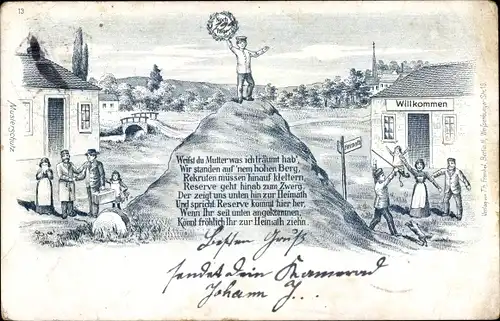 13
Musterschutz
Willkommen
Weißt du Mutter was ich träumt hab',
Wir standen auf 'nem hohen Berg,
Rekruten müssen hinauf klettern,
Reserve geht hinab zum Zwerg.
Der zeigt uns unten hin zur Heimath
Und spricht: Reserve kommt hier her,
Wenn Ihr seit unten angekommen,
Könnt fröhlich Ihr zur Heimath ziehn.
Besten Gruß
sendet dein Kamerad
Johann